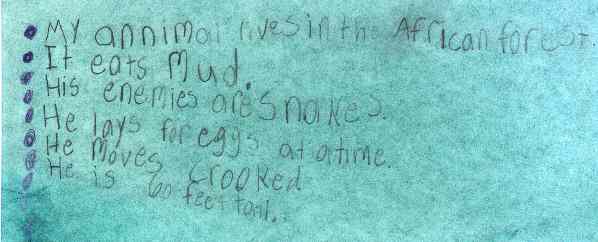 My annimal lives in the African forest.
It eats Mud.
His enemies are snakes.
He lays for eggs at a time.
He moves crooked
He is 60 feet tall.